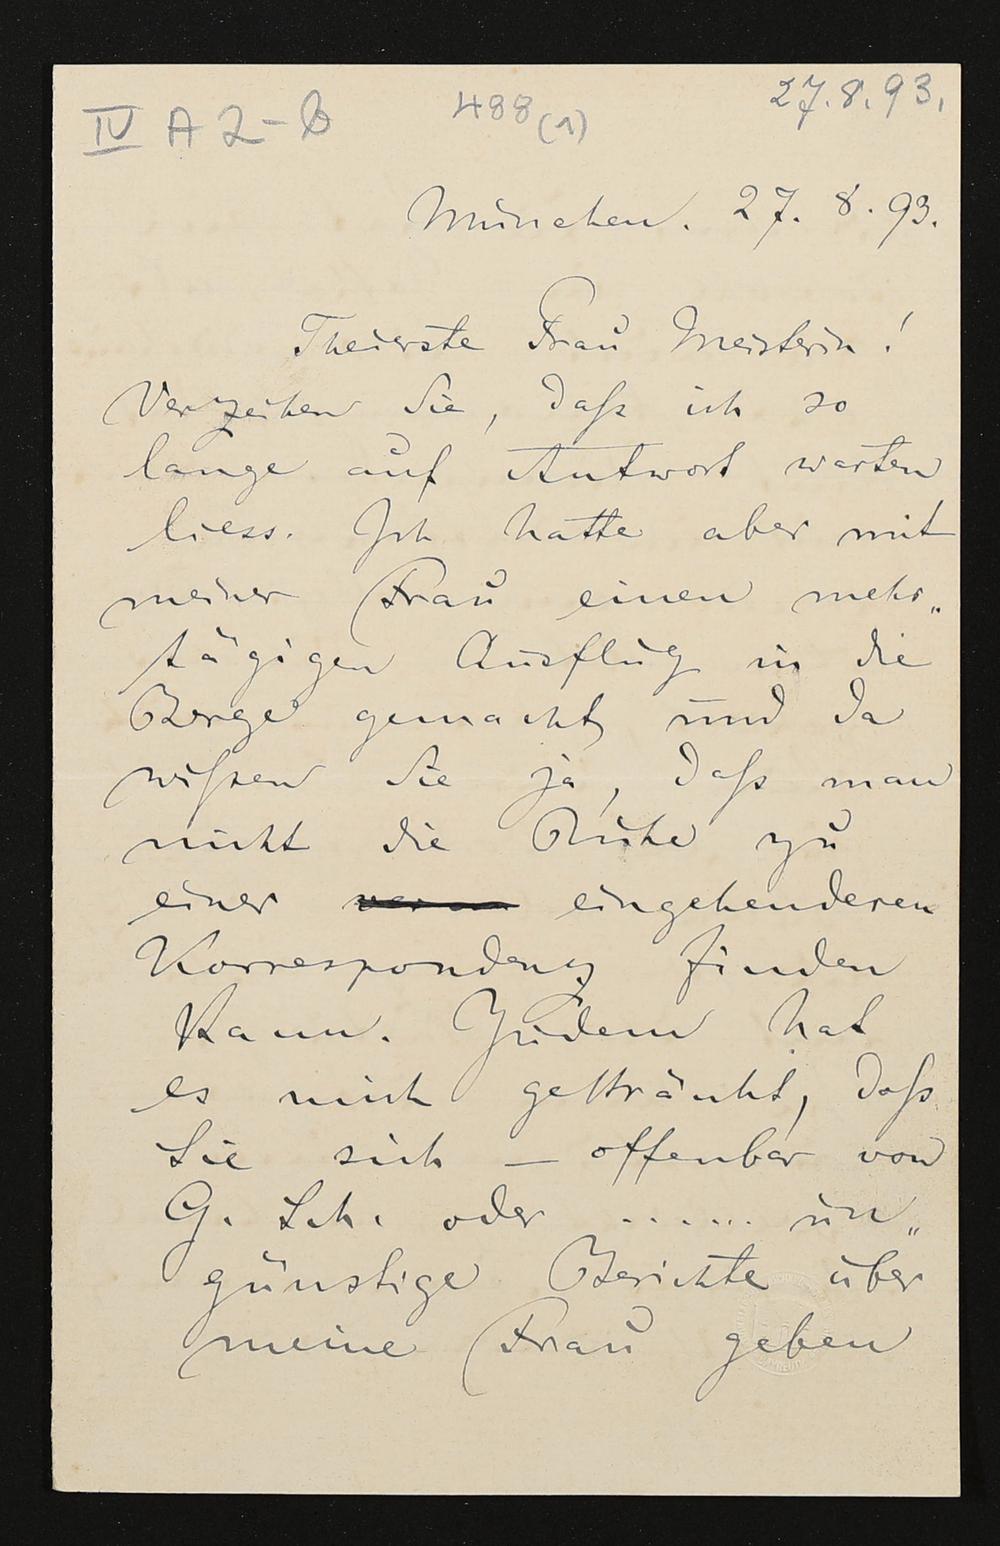 IV A 2 - b
488 (1)
27.8.93.
München. 27. 8. 93.
Theierste Frau Meisterin!
Verzeihen Sie, daß ich so
lange auf Antwort warten
liess. Ich hatte aber mit
meiner Frau einen mehr„
tägigen Ausflug in die
Berge gemacht und da
wißen Sie ja, daß man
nicht die Ruhe zu
einer eingehenderen
Korrespondenz finden
kann. Zudem hat
es mich gekränkt, daß
Sie sich — offenbar von
G. Sch. oder ...... un„
günstige Berichte über
meine Frau geben